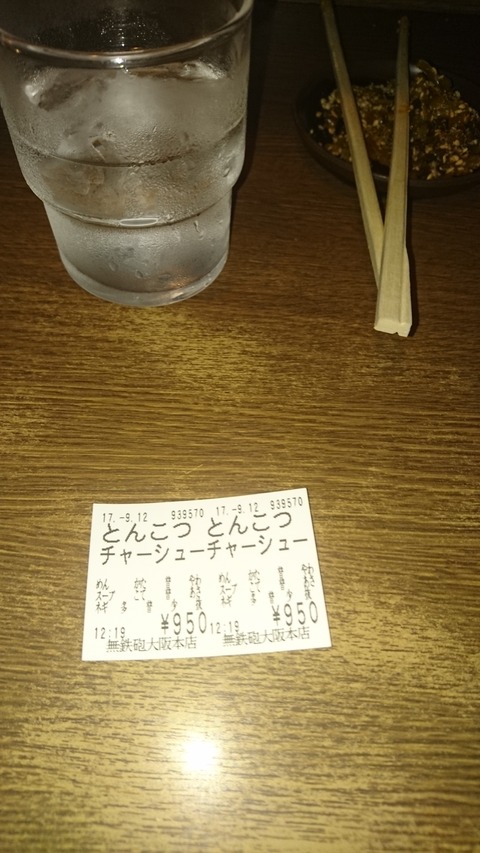 17.-9.12 939570 17.-9.12 939570
とんこつ とんこつ
チャーシューチャーシュー
めん
スープ
ネギ 多 普 少 ネギ 多 普 少
¥950 ¥950
12:19 12:19
無鉄砲大阪本店 無鉄砲大阪本店